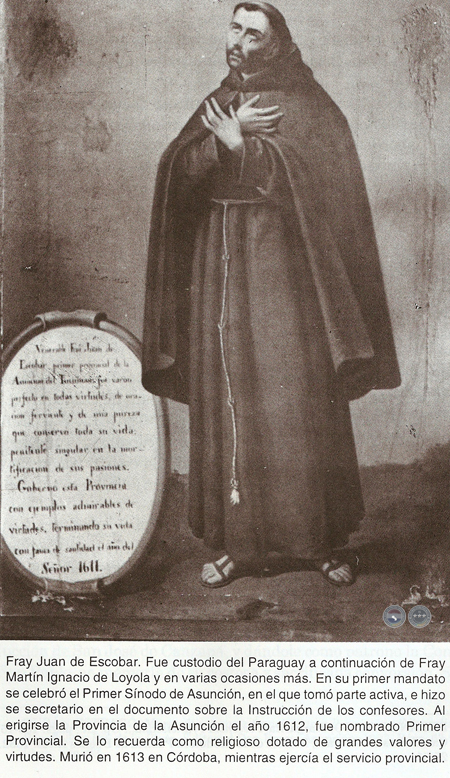 Venerable Frai Juan de
Escobar primer provincial de la
Asuncion del Tucuman, fue varon
perfecto en todas virtudes, de ora-
cion ferviente y de una pureza
que conservo toda su vida;
penitente singular en la mor-
tificacion de sus pasiones.
Goberno esta Provincia
con ejemplos admirables de
virtudes, terminando su vida
con fama de santidad el año del
Señor 1611.
Fray Juan de Escobar. Fue custodio del Paraguay a continuación de Fray
Martín Ignacio de Loyola y en varias ocasiones más. En su primer mandato
se celebró el Primer Sínodo de Asunción, en el que tomó parte activa, e hizo
se secretario en el documento sobre la Instrucción de los confesores. Al
erigirse la Provincia de la Asunción el año 1612, fue nombrado Primer
Provincial. Se lo recuerda como religioso dotado de grandes valores y
virtudes. Murió en 1613 en Córdoba, mientras ejercía el servicio provincial.